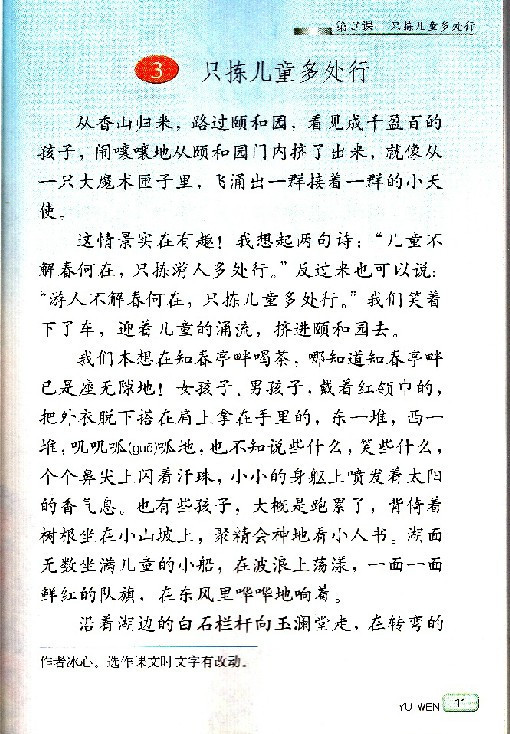 第3课 只拣儿童多处行
3 只拣儿童多处行
从香山归来，路过颐和园，看见成千盈百的
孩子，闹嚷嚷地从颐和园门内挤了出来，就像从
一只大魔术匣子里，飞涌出一群接着一群的小天
使。
这情景实在有趣！我想起两句诗：“儿童不
解春何在，只拣游人多处行。”反过来也可以说：
“游人不解春何在，只拣儿童多处行。”我们笑着
下了车，迎着儿童的涌流，挤进颐和园去。
我们本想在知春亭畔喝茶，哪知道知春亭畔
已是座无隙地！女孩子、男孩子，戴着红领巾的，
把外衣脱下搭在肩上拿在手里的，东一堆，西一
堆，叽叽呱(guā)呱地，也不知说些什么，笑些什么，
个个鼻尖上闪着汗珠，小小的身躯上喷发着太阳
的香气息。也有些孩子，大概是跑累了，背倚着
树根坐在小山坡上，聚精会神地看小人书。湖面
无数坐满儿童的小船，在波浪上荡漾，一面一面
鲜红的队旗，在东风里哗哗地响着。
沿着湖边的白石栏杆向玉澜堂走，在转弯的
作者冰心。选作课文时文字有改动。
YU WEN 11